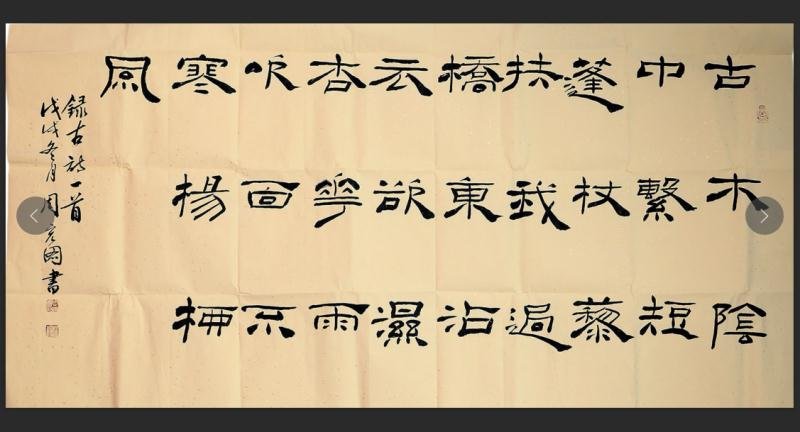 古木陰
中繫短
蓬杖藜
扶我過
橋東沾
衣欲濕
杏華雨
吹面不
寒楊柳
風
錄古詩一首
戊戌冬月周國書